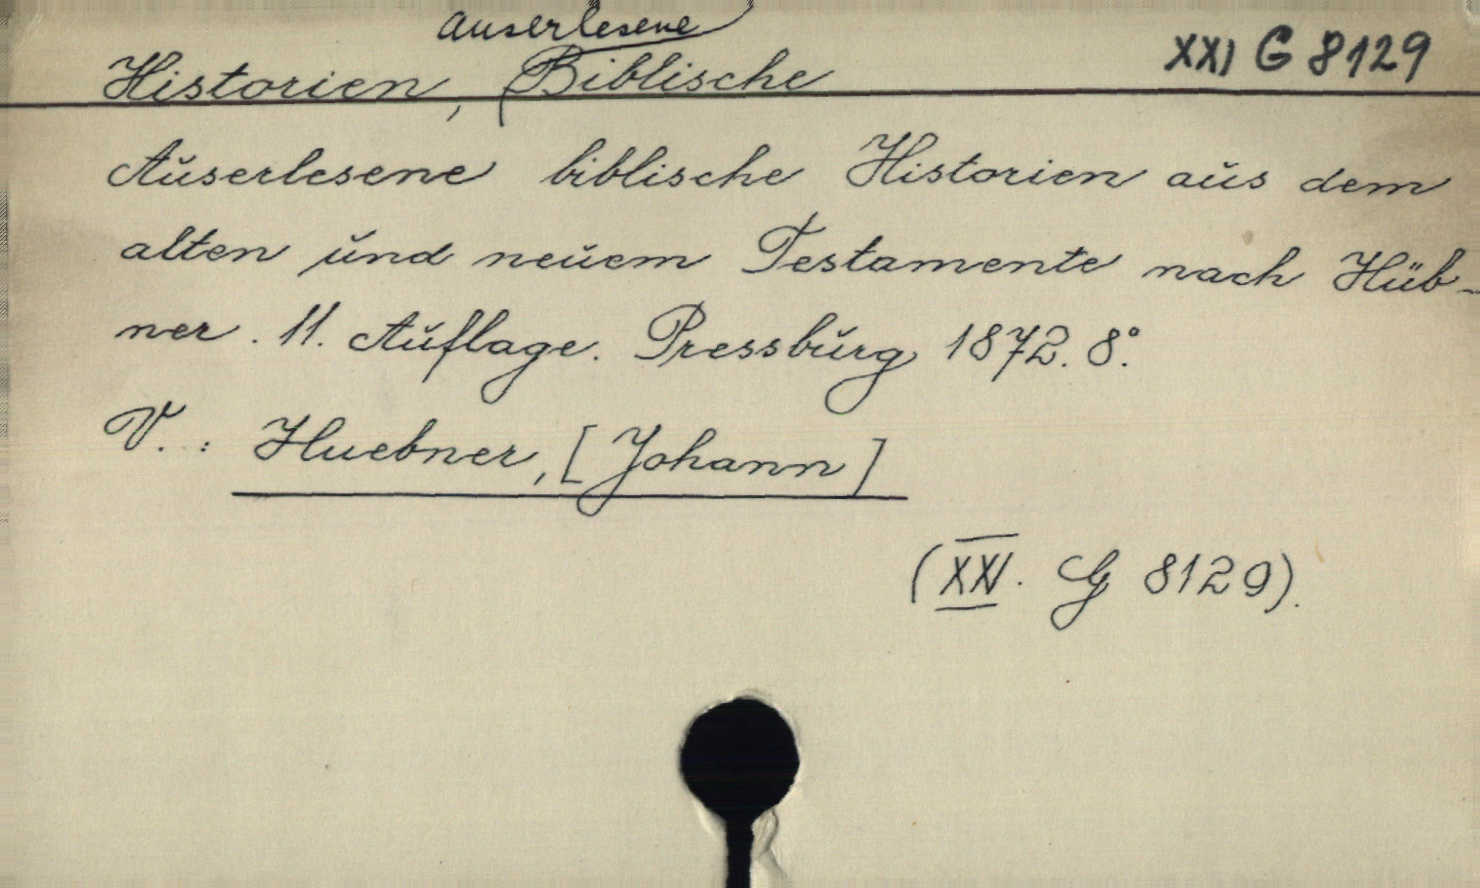 auserlesene
Historien, Biblische
XXI G 8129
Auserlesene biblische Historien aus dem
alten und neuem Testamente nach Hüb-
ner. 11. Auflage. Pressburg 1872. 8°.
V.: Huebner, [Johann]
(XXI. G 8129).